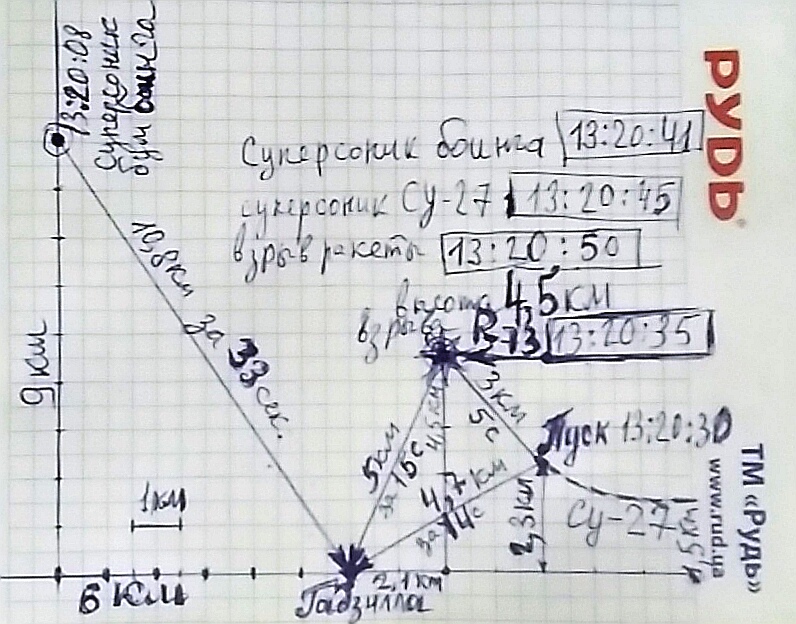 13:20:08
Суперсоник
бум боинга
РУДЬ
Суперсоник боинга 13:20:41
суперсоник Су-27 13:20:45
взрыв ракеты 13:20:50
высота 4,5 км
взрыва
R-73 13:20:35
за 33 сек.
9 км
3 км
5 с
Пуск 13:20:30
5 км
за 15 с
4,5 км
4,7 км
за 14 с
2,3 км
Су-27
1 км
6 КМ
2,1 км
Гадзилла
ТМ «Рудь»
www.rud.ua